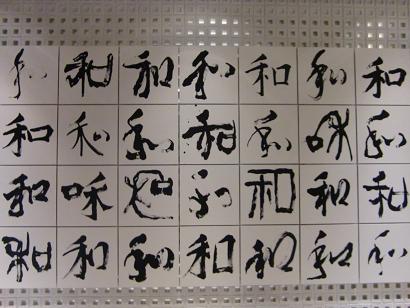 和 和 和 和 和 和 和
和 和 和 和 和 和 和
和 咊 和 和 和 和 和
和 和 和 和 和 和 和